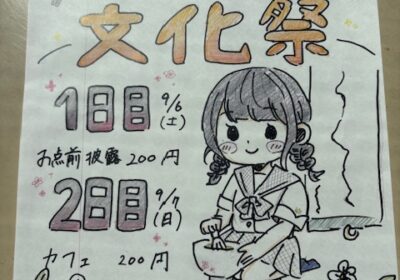 文化祭
1日目 9/6
(土)
お点前披露 200円
2日目 9/7
(日)
カフェ 200円